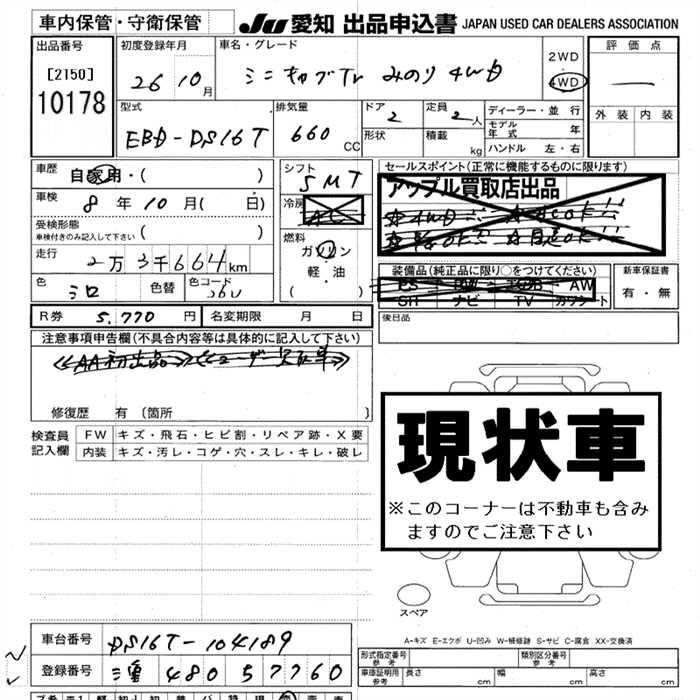 車内保管・守衛保管
JU 愛知 出品申込書 JAPAN USED CAR DEALERS ASSOCIATION
出品番号
[2150]
10178
初度登録年月
26 10月
車名・グレード
ミニキャブTr みのり 4WD
2WD
4WD
評価点
外装 内装
型式
EBD-DS16T
排気量
660 CC
ドア 2
形状
定員 2人
積載 kg
ディーラー・並行
モデル年式 年
ハンドル 左・右
車歴 自家用・( )
車検 8年10月( 日)
受検形態
車検付きのみ記入して下さい ( )
走行 2万3千664km
色 シロ
色替
色コード
シフト
5MT
冷房
AC
燃料
ガソリン
軽・油
( )
セールスポイント(正常に機能するものに限ります)
アップル買取店出品
装備品(純正品に限り○をつけてください)
PS PW AW
SH ナビ TV カワシート
新車保証書
有・無
後日品
R券 5,770円 名変期限 月 日
注意事項申告欄(不具合内容等は具体的に記入して下さい)
<<AA初出品>><<ユーザー買取車>>
修復歴 有 〔箇所 〕
検査員記入欄
FW キズ・飛石・ヒビ割・リペア跡・X要
内装 キズ・汚レ・コゲ・穴・スレ・キレ・破レ
現状車
※このコーナーは不動車も含みますのでご注意下さい
スペア
A-キズ E-エクボ U-凹み W-補修跡 S-サビ C-腐食 XX-交換済
車台番号 DS16T-104189
登録番号 480 57760
形式指定番号 参考
類別区分番号 参考
車庫証明用 参考 長さ cm 幅 cm 高さ cm